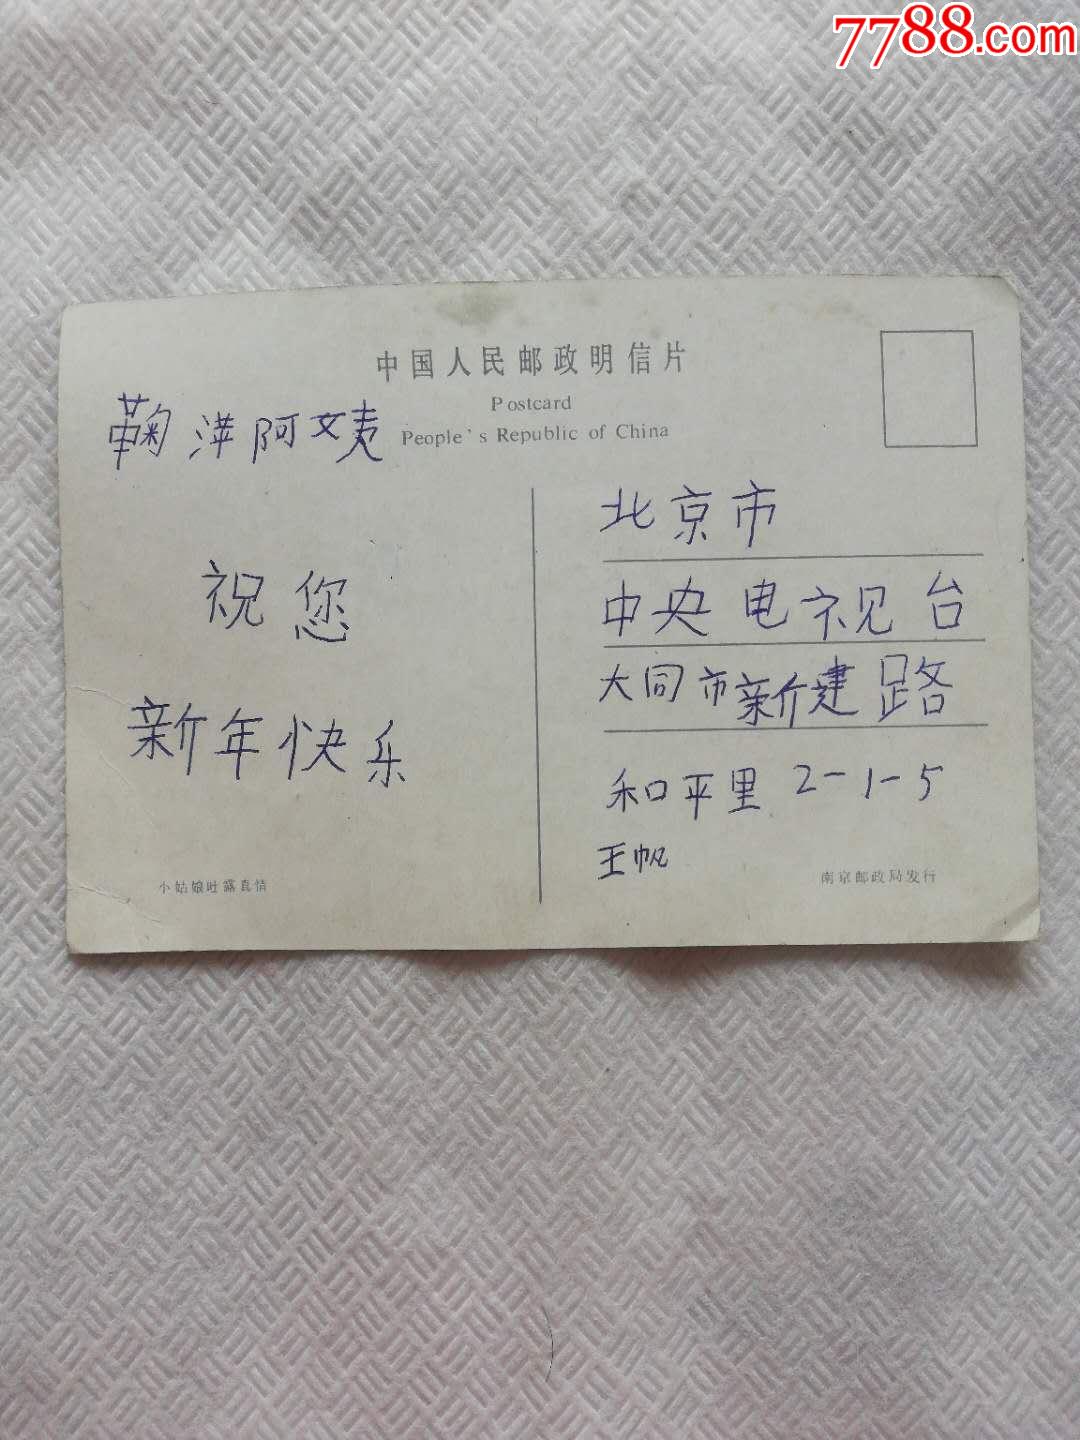 7788.com
中国人民邮政明信片
Postcard
People's Republic of China
鞠萍阿姨
祝您
新年快乐
北京市
中央电视台
大同市新建路
和平里 2-1-5
王帆
小姑娘吐露真情
南京邮政局发行